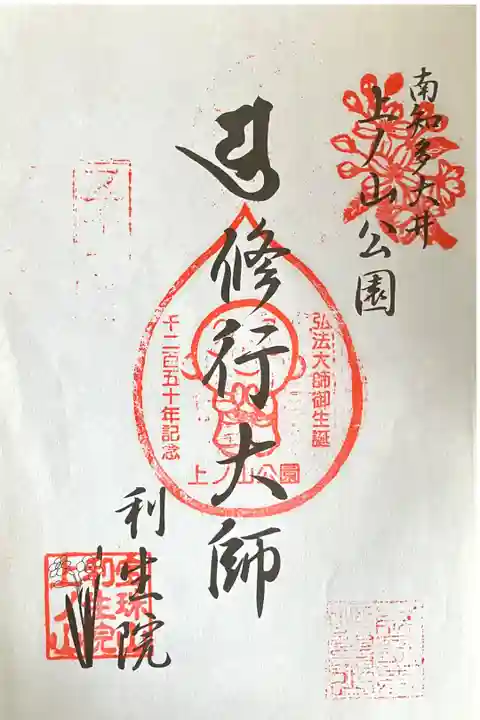 南知多大井
上ノ山公園
修行大師
弘法大師御生誕
千二百五十年記念
上ノ山公園
利生院
利生院